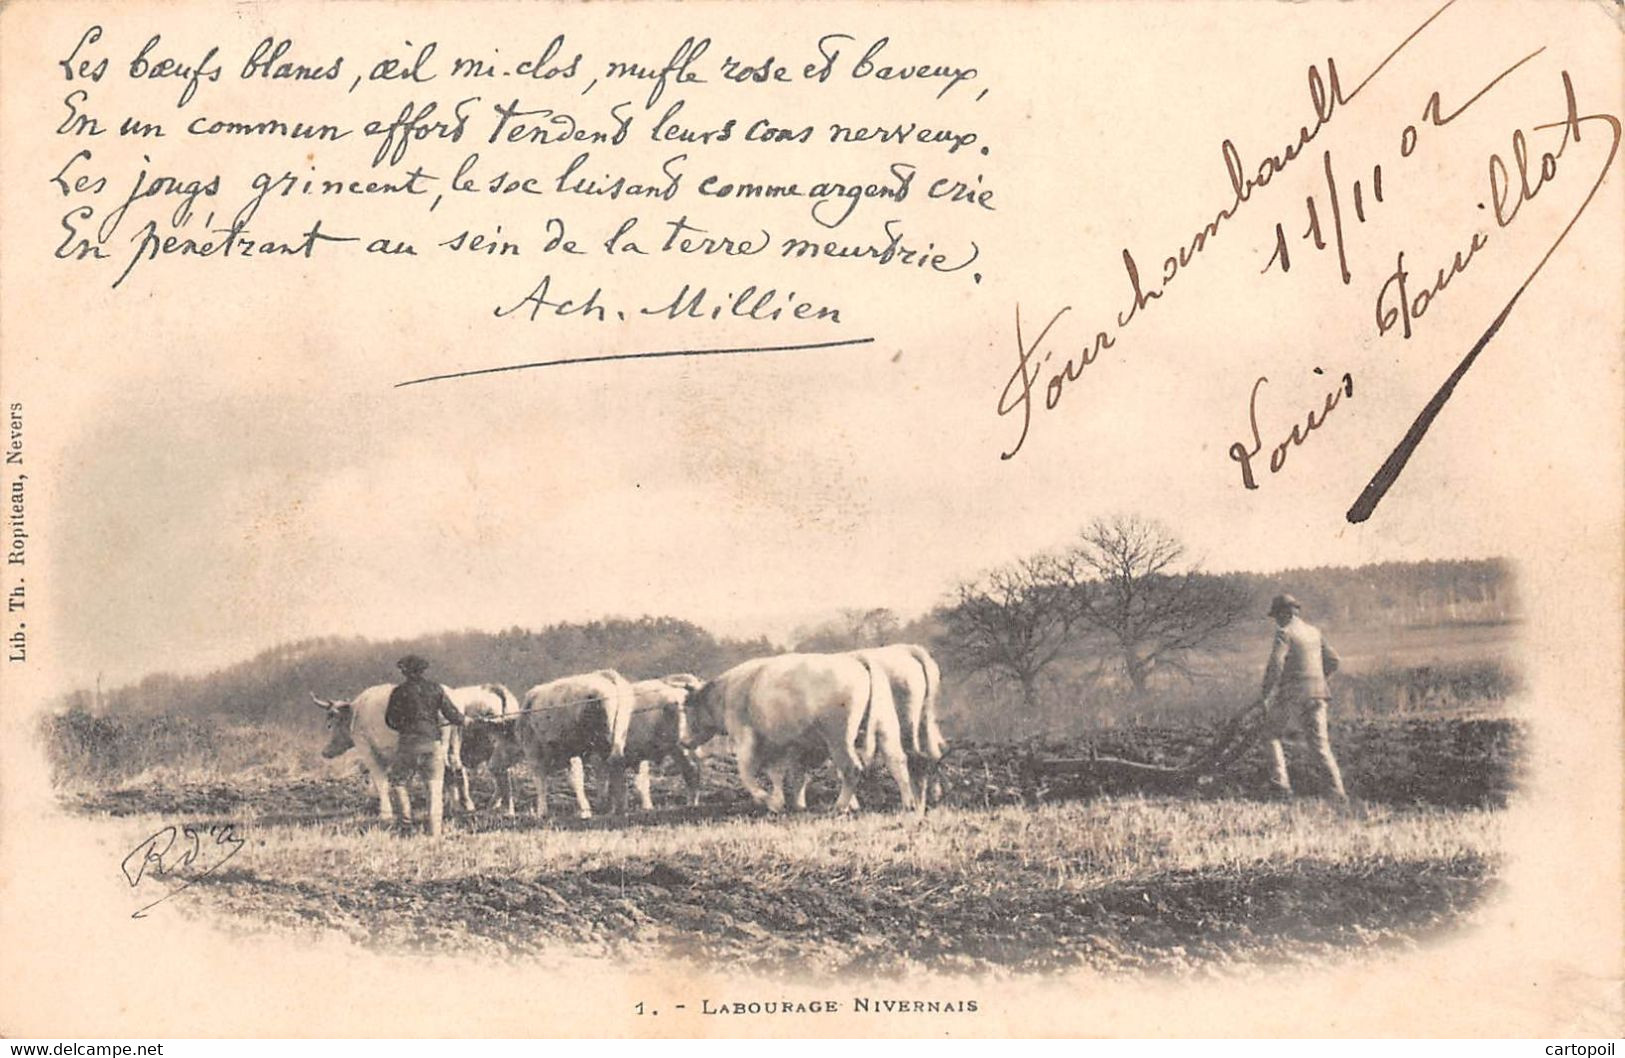 Les bœufs blancs, œil mi-clos, mufle rose et baveux,
En un commun effort tendent leurs cous nerveux.
Les jougs grincent, le soc luisant comme argent crie
En pénétrant au sein de la terre meurtrie.
Ach. Millien
Fourchambault
11/11 02
Louis Pouillot
Lib. Th. Ropiteau, Nevers
Rd'A
1. - LABOURAGE NIVERNAIS
delcampe.net
cartopoil